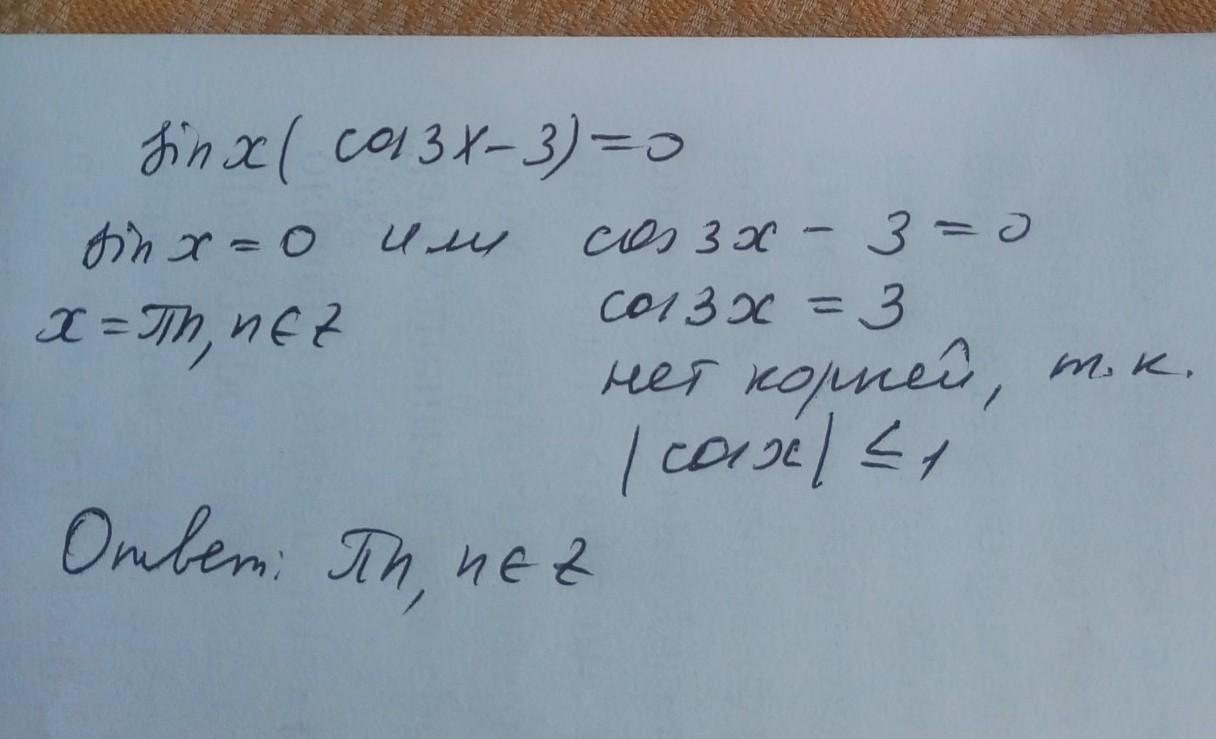 sin x ( cos 3x - 3) = 0
sin x = 0 или cos 3x - 3 = 0
x = πn, n ∈ Z cos 3x = 3
нет корней, т.к.
|cos x| ≤ 1
Ответ: πn, n ∈ Z